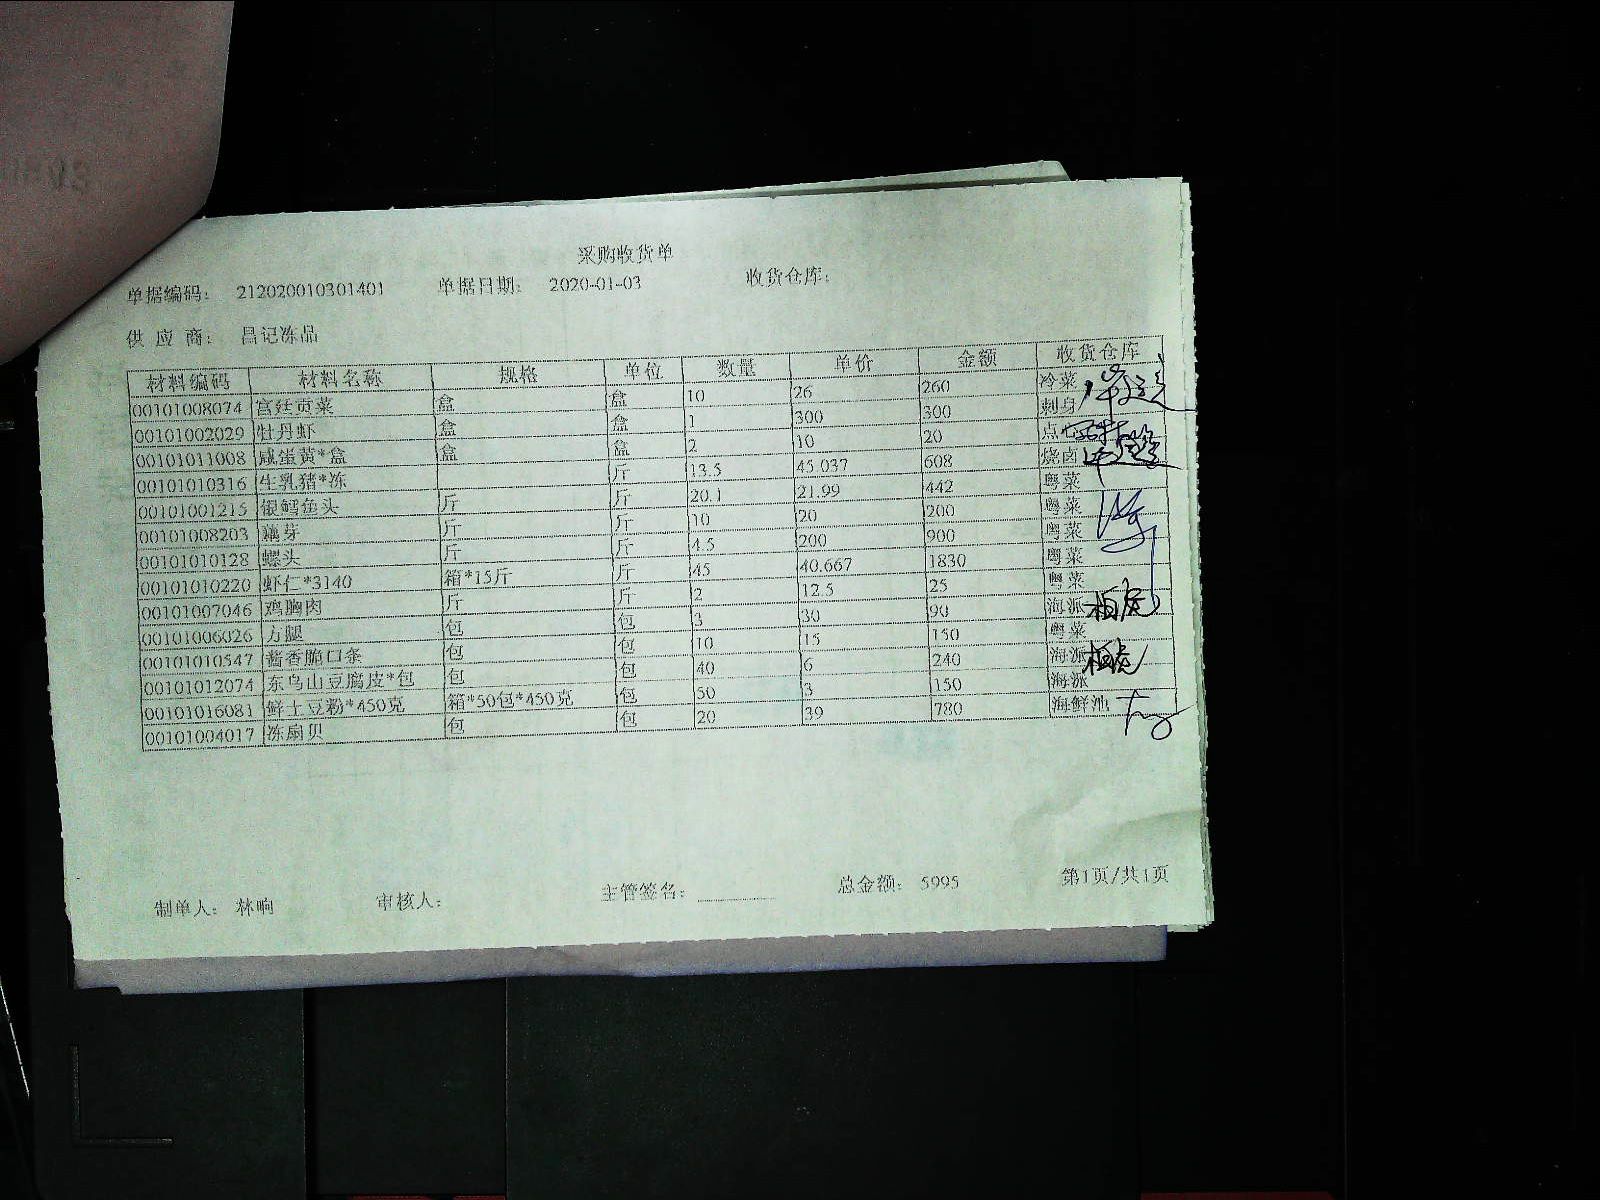 采购收货单
单据编码： 212020010301401 单据日期： 2020-01-03 收货仓库：
供 应 商： 昌记冻品
材料编码 材料名称 规格 单位 数量 单价 金额 收货仓库
00101008074 宫廷贡菜 盒 盒 10 26 260 冷菜
00101002029 牡丹虾 盒 盒 1 300 300 刺身
00101011008 咸蛋黄*盒 盒 盒 2 10 20 点心
00101010316 生乳猪*冻 斤 13.5 45.037 608 烧卤
00101001215 银鳕鱼头 斤 斤 20.1 21.99 442 粤菜
00101008203 藕芽 斤 斤 10 20 200 粤菜
00101010128 螺头 斤 斤 4.5 200 900 粤菜
00101010220 虾仁*3140 箱*15斤 斤 45 40.667 1830 粤菜
00101007046 鸡胸肉 斤 斤 2 12.5 25 粤菜
00101006026 方腿 包 包 3 30 90 海派
00101010547 酱香脆口条 包 包 10 15 150 粤菜
00101012074 东乌山豆腐皮*包 包 包 40 6 240 海派
00101016081 鲜土豆粉*450克 箱*50包*450克 包 50 3 150 海派
00101004017 冻扇贝 包 包 20 39 780 海鲜池
制单人： 林响 审核人： 主管签名： 总金额： 5995 第1页/共1页